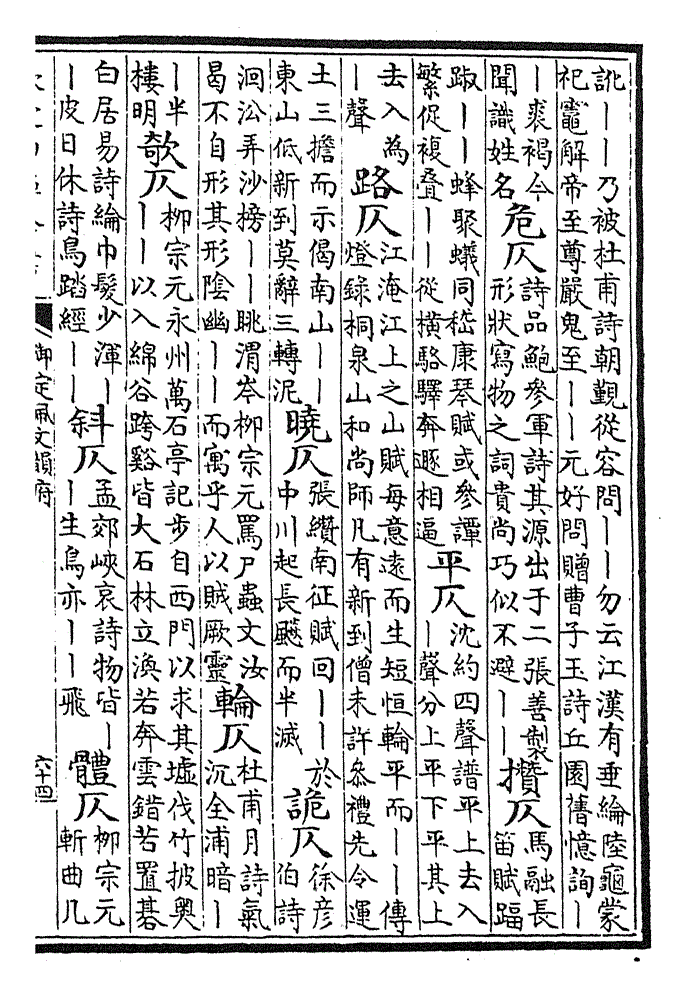 訛丨丨乃被杜甫詩朝覲從容問丨丨勿云江漢有垂綸陸龜蒙
祀竈解帝至尊嚴鬼至丨丨元好問贈曹子玉詩丘園舊憶詢丨
丨裘褐今
聞識姓名
危仄
詩品鮑參軍詩其源出于二張善製
形狀寫物之詞貴尚巧似不避丨丨
攢仄
馬融長
笛賦踾
踧丨丨蜂聚蟻同嵇康琴賦或參譚
繁促複疊丨丨從橫駱驛奔遯相逼
平仄
沈約四聲譜平上去入
丨聲分上平下平其上
去入為
丨聲
路仄
江淹江上之山賦每意遠而生短恒輪平而丨丨傳
燈錄桐泉山和尚師凡有新到僧未許叅禮先令運
土三擔而示偈南山丨丨
東山低新到莫辭三轉泥
曉仄
張纘南征賦回丨丨於
中川起長飇而半滅
詭仄
徐彦
伯詩
洄沿弄沙榜丨丨眺渭岑柳宗元罵尸蟲文汝
曷不自形其形陰幽丨丨而寓乎人以賊厥靈
輪仄
杜甫月詩氣
沉全浦暗丨
丨半
樓明
欹仄
柳宗元永州萬石亭記步自西門以求其墟伐竹披奧
丨丨以入綿谷跨谿皆大石林立渙若奔雲錯若置碁
白居易詩綸巾髮少渾丨
丨皮日休詩鳥踏經丨丨
斜仄
孟郊峽哀詩物皆丨
丨生鳥亦丨丨飛
體仄
柳宗元
斬曲几
御定佩文韻府
六十四